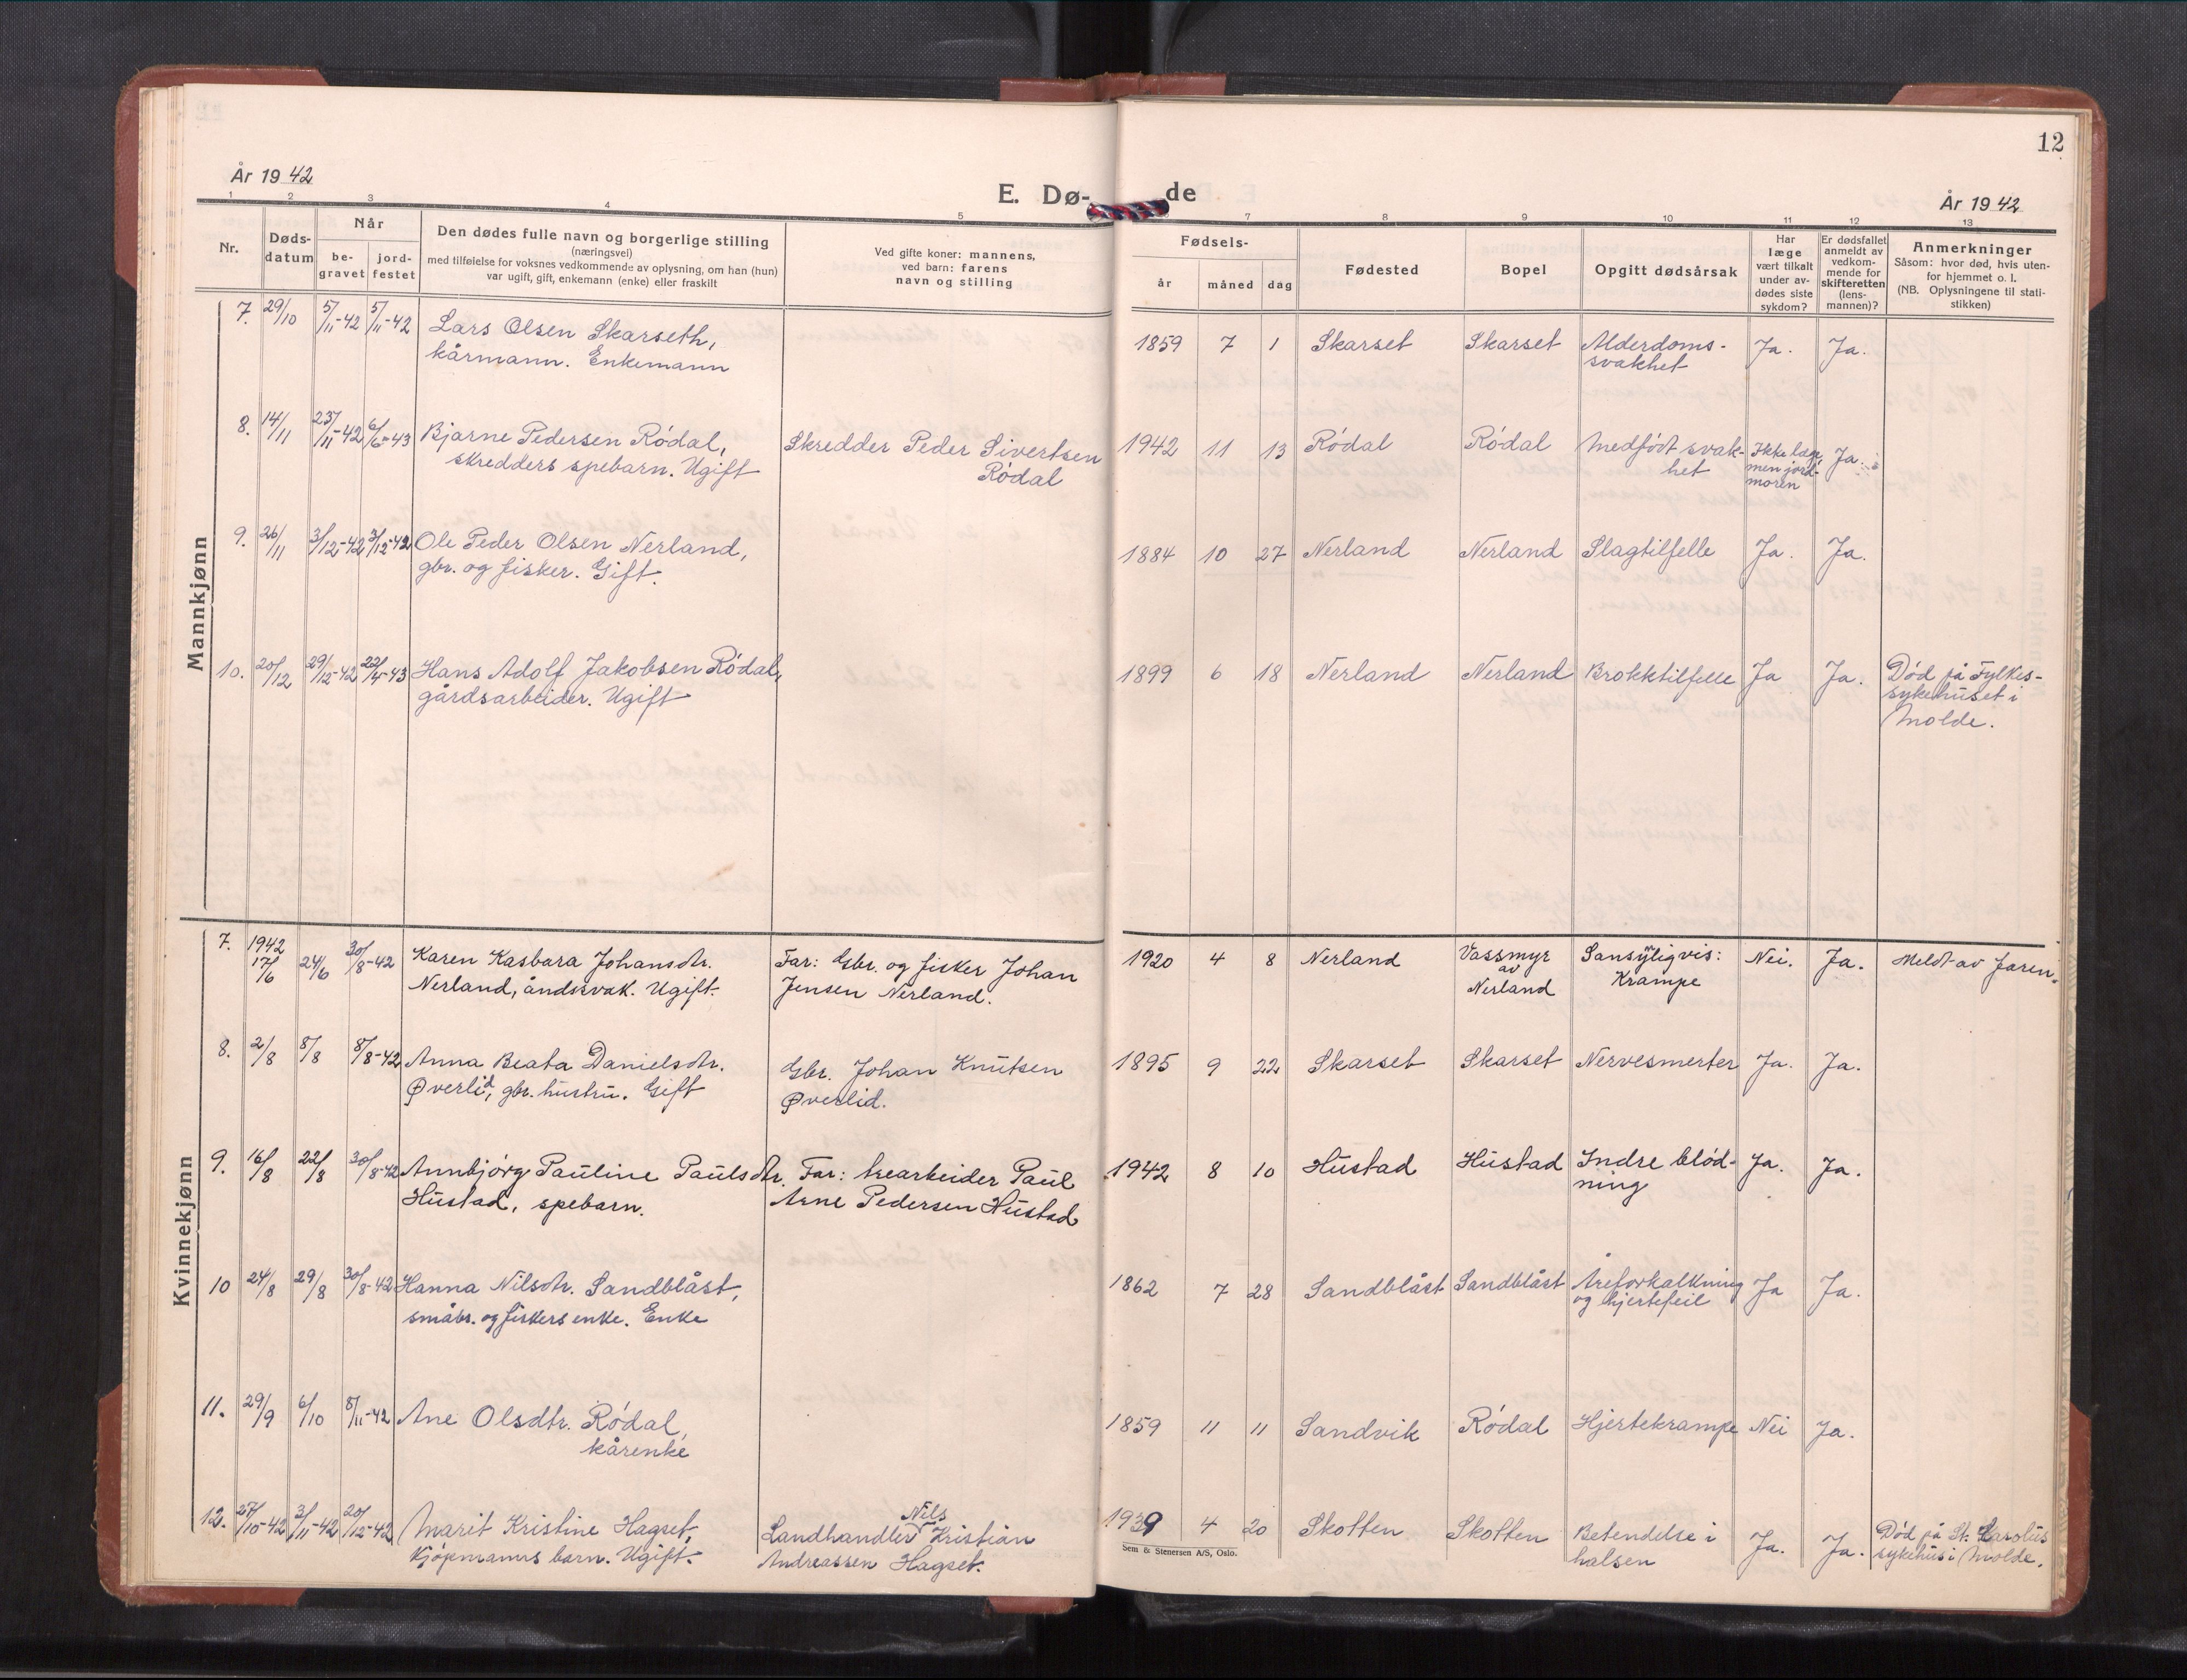 12
År 1942
E. Dø-
de
År 1942
1 2 3 4 5 7 8 9 10 11 12 13
Nr.
Døds-
datum
Når
be-
gravet
jord-
festet
Den dødes fulle navn og borgerlige stilling
(næringsvei)
med tilføielse for voksnes vedkommende av oplysning, om han (hun)
var ugift, gift, enkemann (enke) eller fraskilt
Ved gifte koner: mannens,
ved barn: farens
navn og stilling
Fødsels-
år måned dag
Fødested
Bopel
Opgitt dødsårsak
Har
læge
vært tilkalt
under av-
dødes siste
sykdom?
Er dødsfallet
anmeldt av
vedkom-
mende for
skifteretten
(lens-
mannen)?
Anmerkninger
Såsom: hvor død, hvis uten-
for hjemmet o. l.
(NB. Oplysningene til stati-
stikken)
Mannkjønn
7. 29/10 5/11-42 5/11-42 Lars Olsen Skarseth, 1859 7 1 Skarset Skarset Alderdoms- Ja. Ja.
kårmann. Enkemann svakhet
8. 14/11 23/11-42 6/6-43 Bjarne Pedersen Rödal, Skredder Peder Sivertsen 1942 11 13 Rödal Rödal Medfödt svak- Ikke læge, Ja.
skredders spebarn. Ugift Rödal het men jord-
moren
9. 26/11 3/12-42 3/12-42 Ole Peder Olsen Nerland, 1884 10 27 Nerland Nerland Slagtilfelle Ja. Ja.
gbr. og fisker. Gift.
10. 20/12 29/12-42 22/4-43 Hans Adolf Jakobsen Rödal, 1899 6 18 Nerland Nerland Brokktilfelle Ja Ja. Död på Fylkes-
gårdsarbeider. Ugift sykehuset i
Molde.
Kvinnekjønn
7. 1942
17/6 24/6 30/8-42 Karen Kasbara Johansdtr. Far: Gbr. og fisker Johan 1920 4 8 Nerland Vassmyr Sansynligvis: Nei. Ja. Meldt av faren.
Nerland, åndssvak. Ugift. Jensen Nerland. av Krampe
Nerland
8. 2/8 8/8 8/8-42 Anna Beata Danielsdtr. Gbr. Johan Knutsen 1895 9 22 Skarset Skarset Nervesmerter Ja. Ja.
Øverlid, gbr. hustru. Gift Øverlid.
9. 16/8 22/8 30/8-42 Annbjörg Pauline Paulsdtr. Far: trearbeider Paul 1942 8 10 Hustad Hustad Indre blöd- Ja. Ja.
Hustad, spebarn. Arne Pedersen Hustad ning
10 24/8 29/8 30/8-42 Hanna Nilsdtr. Sandblåst, 1862 7 28 Sandblåst Sandblåst Åreforkalkning Ja Ja.
småbr. og fiskers enke. Enke og hjertefeil
11. 29/9 6/10 8/11-42 Ane Olsdtr. Rödal, 1859 11 11 Sandvik Rödal Hjertekrampe Nei Ja.
kårenke
Nils
12. 27/10-42 3/11-42 20/12-42 Marit Kristine Hagset, Landhandler Kristian 1939 4 20 Skotten Skotten Betendelse i Ja. Ja. Död på St. Carolus
Kjöpmanns barn. Ugift. Andreassen Hagset. halsen sykehus i Molde.
Sem & Stenersen A/S, Oslo.